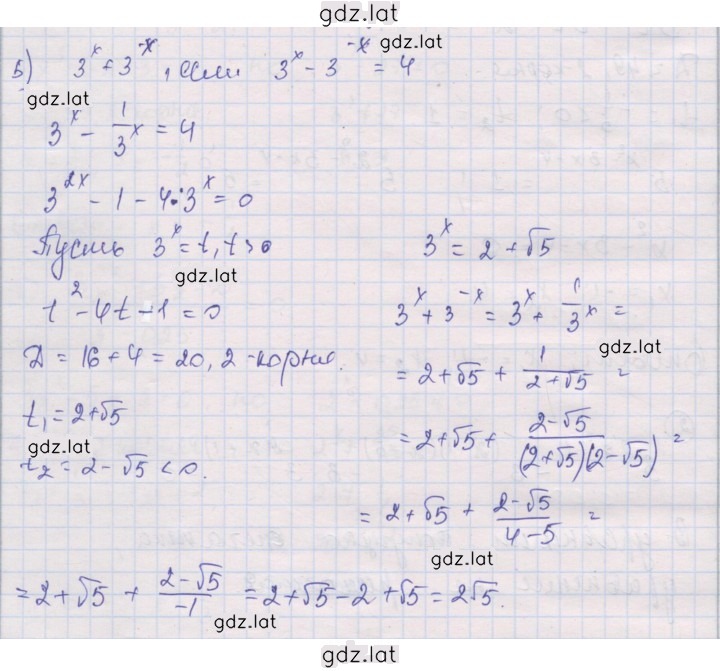 gdz.lat
Б) 3^x + 3^-x, если 3^x - 3^-x = 4
gdz.lat
gdz.lat
3^x - 1/3^x = 4
3^2x - 1 - 4·3^x = 0
Пусть 3^x = t, t > 0
gdz.lat
t^2 - 4t - 1 = 0
Д = 16 + 4 = 20, 2 - корня.
t₁ = 2+√5
gdz.lat
t₂ = 2 - √5 < 0.
3^x = 2 + √5
3^x + 3^-x = 3^x + 1/3^x =
gdz.lat
= 2 + √5 + 1/(2+√5) =
= 2 + √5 + (2-√5)/((2+√5)(2-√5)) =
= 2 + √5 + (2-√5)/(4-5) =
gdz.lat
= 2 + √5 + (2-√5)/-1 = 2 + √5 - 2 + √5 = 2√5.
gdz.lat
gdz.lat